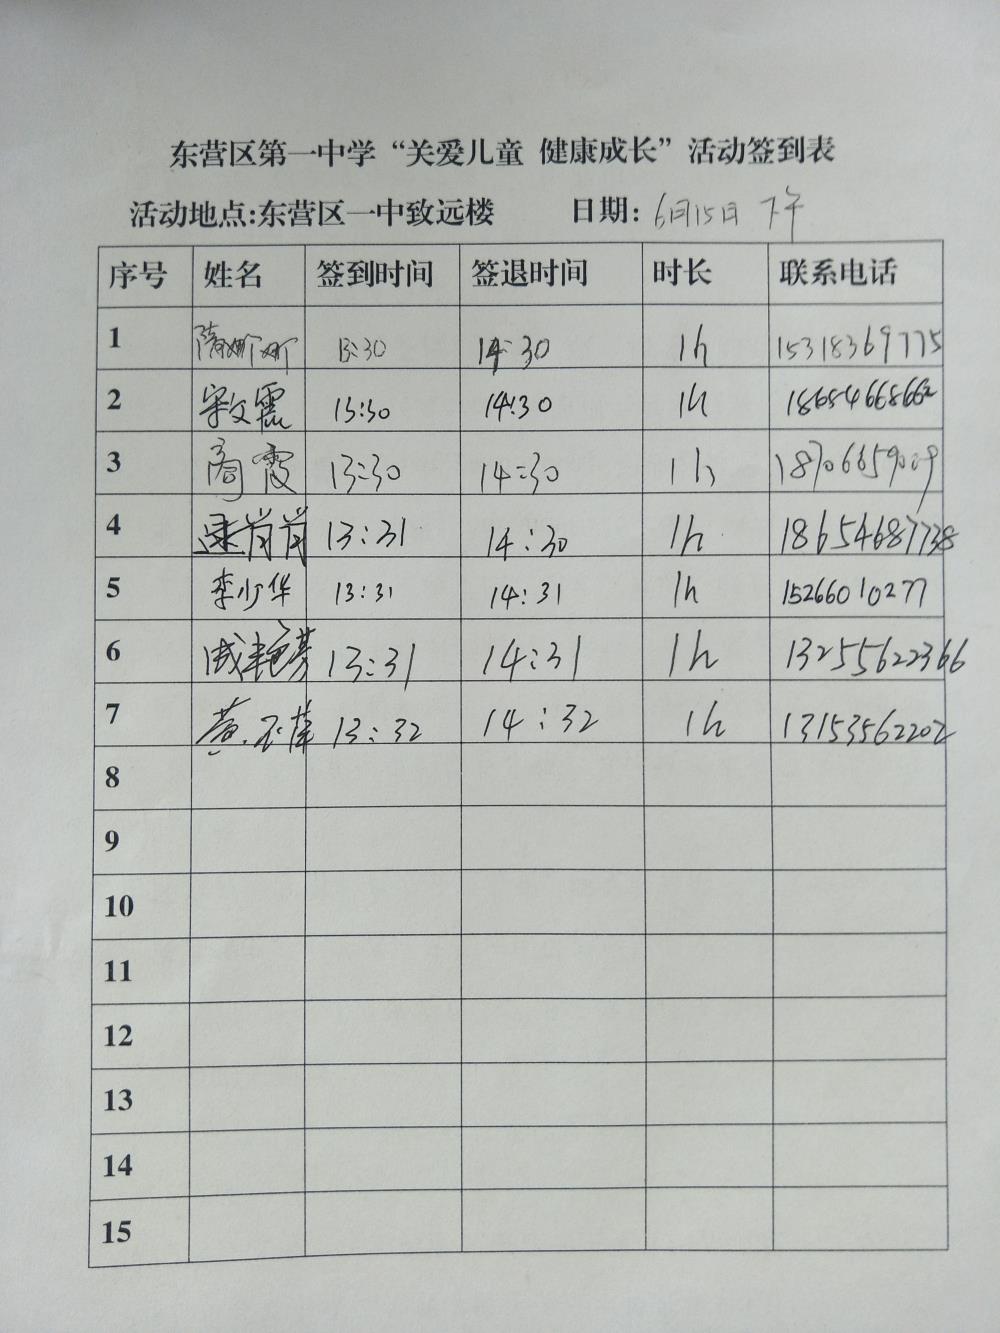 东营区第一中学“关爱儿童 健康成长”活动签到表
活动地点:东营区一中致远楼 日期: 6月15日 下午
序号 姓名 签到时间 签退时间 时长 联系电话
1 隋娜娜 13:30 14:30 1h 15318369775
2 宋文震 13:30 14:30 1h 18654668662
3 商霞 13:30 14:30 1h 18706659009
4 逯肖肖 13:31 14:30 1h 18654687738
5 李少华 13:31 14:31 1h 15266010277
6 戚艳芳 13:31 14:31 1h 13255622366
7 黄 13:32 14:32 1h 13153562202
8
9
10
11
12
13
14
15